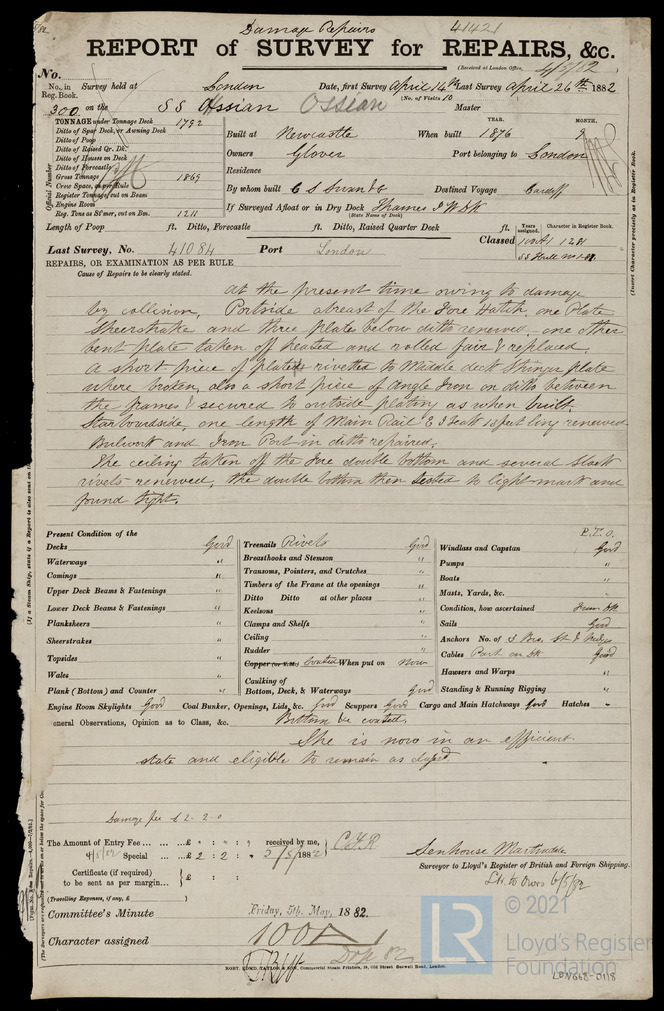 Damage Repairs
41421
REPORT of SURVEY for REPAIRS, &c.
(Received at London Office, 4/5/82
No.
No. in Reg. Book. Survey held at London Date, first Survey April 14th Last Survey April 26th 1882
(No. of Visits 10
300 on the SS Ossian Ossian Master
TONNAGE under Tonnage Deck 1792
Ditto of Spar Deck, or Awning Deck
Ditto of Poop
Ditto of Raised Qr. Dk.
Ditto of Houses on Deck
Ditto of Forecastle
Gross Tonnage 1869
Crew Space, as per Rule
Register Tonnage, cut on Beam
Engine Room
Reg. Tons as St'mer, cut on Bm. 1211
Official Number
YEAR. MONTH.
Built at Newcastle When built 1876 9
Owners Glover Port belonging to London
Residence
By whom built C S Swan & Co Destined Voyage Cardiff
If Surveyed Afloat or in Dry Dock Thames I W DK
(State Name of Dock)
Length of Poop ft. Ditto, Forecastle ft. Ditto, Raised Quarter Deck ft.
Years assigned. Character in Register Book.
Last Survey, No. 41084 Port London Classed 100A1 12 81
SS Hull No 1-81
(Insert Character precisely as in Register Book.
REPAIRS, OR EXAMINATION AS PER RULE
Cause of Repairs to be clearly stated.
At the present time owing to damage
by collision, Portside abreast of the Fore Hatch, one Plate
Sheerstrake and three plates below ditto renewed, one other
bent plate taken off heated and rolled fair & replaced.
A short piece of plate rivetted to Middle deck Stringer plate
where broken, also a short piece of angle Iron on ditto between
the frames & secured to outside plating as when built.
Starboardside, one length of Main Rail E I Teak 18 feet long renewed
Bulwark and Iron Port in ditto repaired,
The ceiling taken off the fore double bottom and several slack
rivets renewed, the double bottom then tested to light mark and
found tight.
P.T.O.
Present Condition of the
Decks Good
Waterways "
Comings "
Upper Deck Beams & Fastenings "
Lower Deck Beams & Fastenings "
Planksheers "
Sheerstrakes "
Topsides "
Wales "
Plank (Bottom) and Counter "
Treenails Rivets Good
Breasthooks and Stemson "
Transoms, Pointers, and Crutches "
Timbers of the Frame at the openings "
Ditto Ditto at other places "
Keelsons "
Clamps and Shelfs "
Ceiling "
Rudder "
Copper (or Y.M.) Coated When put on Now
Caulking of
Bottom, Deck, & Waterways Good
Windlass and Capstan Good
Pumps "
Boats "
Masts, Yards, &c. "
Condition, how ascertained From Dk
Sails Good
Anchors No. of 3 Brs. St & Kedges
Cables Part on Dk Good
Hawsers and Warps "
Standing & Running Rigging "
Engine Room Skylights Good Coal Bunker, Openings, Lids, &c. Good Scuppers Good Cargo and Main Hatchways Good Hatches "
eneral Observations, Opinion as to Class, &c. Bottom be coated.
She is now in an efficient
state and eligible to remain as classed
Damage fee £2-2-0
The Amount of Entry Fee £ : : received by me, C.F.R
4/5/82 Special £ 2 : 2 : 2/5/1882
Certificate (if required)
to be sent as per margin £ :
(Travelling Expenses, if any, £ )
Senhouse Martindale
Surveyor to Lloyd's Register of British and Foreign Shipping.
Ltr. to Owrs 6/5/82
Committee's Minute Friday, 5th May, 1882.
Character assigned 100A1
ROBT. EDMD. TAYLOR & SON, Commercial Steam Printers, 19, Old Street, Goswell Road, London.
LR
© 2021
Lloyd's Register
Foundation
LDN668-0118